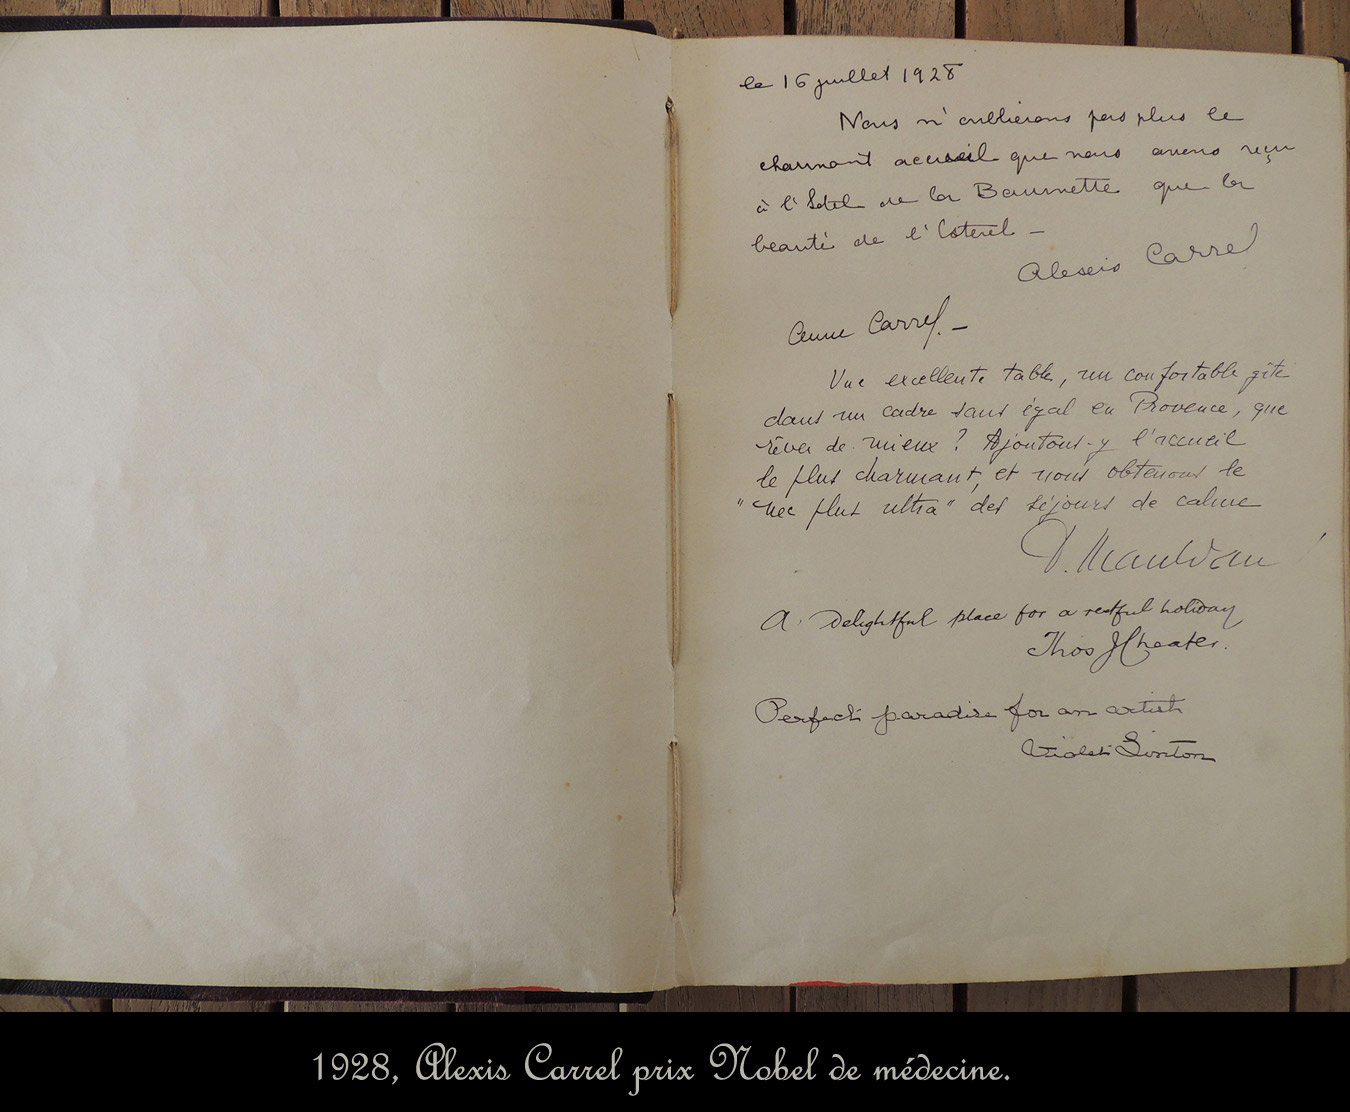 le 16 juillet 1928
Nous n'oublierons pas plus le
charmant accueil que nous avons reçu
à l'Hotel de la Baumette que la
beauté de l'Esterel –
Alexis Carrel
Anne Carrel. –
Une excellente table, un confortable gîte
dans un cadre sans égal en Provence, que
rêver de mieux ? Ajoutons-y l'accueil
le plus charmant, et nous obtenons le
"nec plus ultra" des séjours de calme
A. Delightful place for a restful holiday
Thos J Cheater.
Perfect paradise for an artist
Violet Linton
1928, Alexis Carrel prix Nobel de médecine.